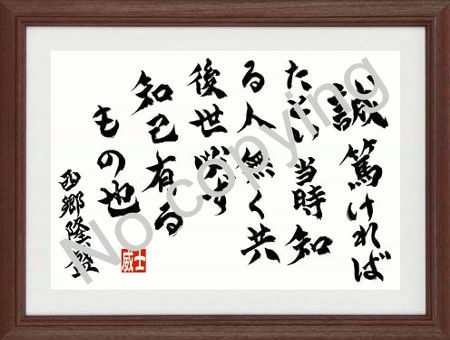 誠篤ければ
たとい当時知
る人無く共
後世必ず
知己有る
もの也
西郷隆盛
士威
No copying